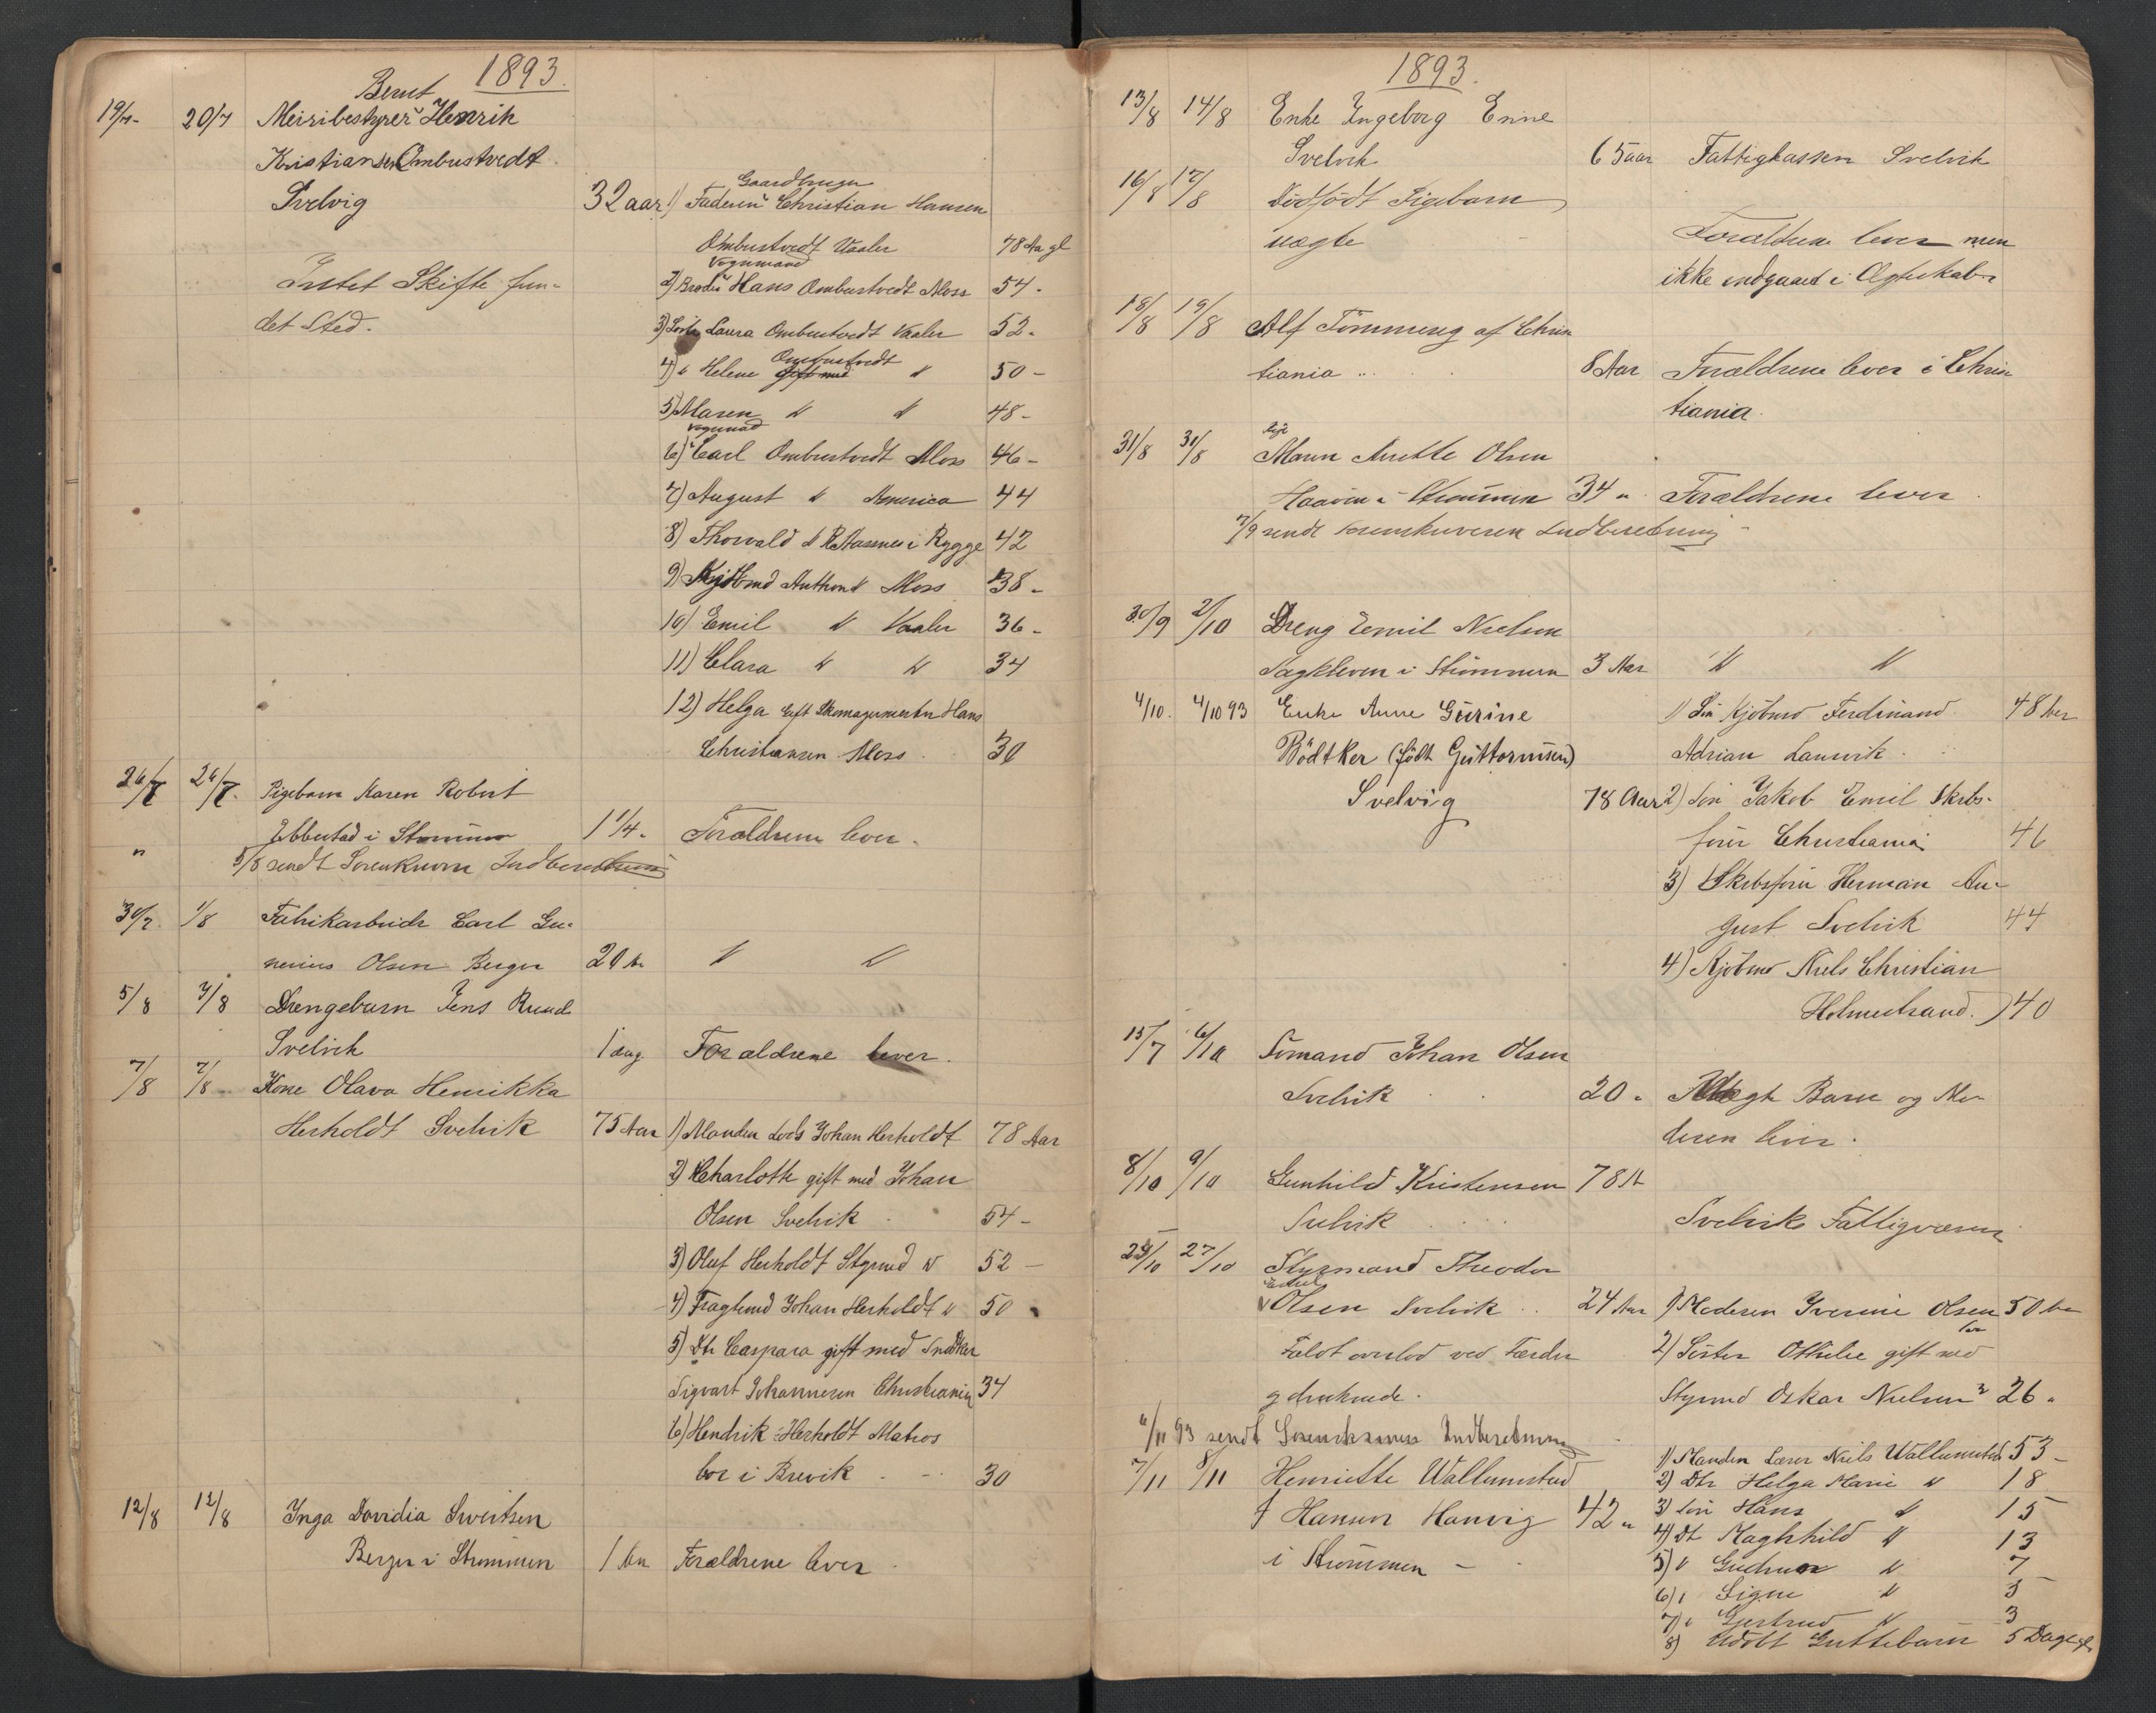 1893.
Bernt
19/7 20/7 Meiribestyrer Henrik
Kristiansen Ombustvedt
Svelvig 32 aar
Gaardbruger
1) Faderen Christian Hansen
Ombustvedt Vaaler 78 Aa gl
Intet Skifte fun-
det Sted.
Vognmand
2) Broder Hans Ombustvedt Moss 54 -
3) Laura Ombustvedt Vaaler 52 -
Ombustvedt
4) " Helene gift med " 50 -
5) Maren " " 48 -
Vognmand
6) Carl Ombustvedt Moss 46 -
7) August " America 44
8) Thorvald " i Rygge 42
9) Kjøbmd Anthon " Moss 38 -
10) Emil " Vaaler 36 -
11) Clara " " 34
12) Helga Gift Skomagermester Hans
Christiansen Moss 30
26/7 26/7 Pigebarn Karen Robert
Ebbestad i Strømmen 1 1/4 - Forældrene lever.
" 5/8 sendt Sorenskriveren Indberetning
30/7 1/8 Fabrikarbeider Carl Gu-
nerius Olsen Berger 20 Aar " "
5/8 7/8 Drengebarn Jens Ruud
Svelvik 1 dag Forældrene lever.
7/8 7/8 Kone Olava Henrikka
Herholdt Svelvik 75 Aar 1) Manden Lods Johan Herholdt 78 Aar
2) Charlotte gift med Johan
Olsen Svelvik 54 -
3) Oluf Herholdt Styrmd " 52 -
4) Johan Herholdt " 50
5) Dtr Caspara gift med Snedker
Sigvart Johannesen Christiania 34
6) Hendrik Herholdt Matros
bor i Brevik 30
12/8 12/8 Inga Davidia Sivertsen
Berger i Strømmen 1 Aar Forældrene lever
1893.
13/8 14/8 Enke Ingeborg Enne
Svelvik 65 aar Fattigkassen Svelvik
16/8 17/8 Dødfødt Pigebarn
uægte Forældrene lever men
ikke indgaaet i Ægteskab
18/8 19/8 Alf Tømmerug af Chris
tiania 8 Aar Forældrene lever i Chris
tiania.
Pige
31/8 31/8 Maren Anette Olsen
Haaven i Strømmen 34 " Forældrene lever
7/9 sendt Sorenskriveren Indberetning
30/9 2/10 Dreng Emil Nielsen
Sagkleven i Strømmen 3 Aar " "
4/10 4/10 93 Enke Anne Gurine
Bødtker (født Guttormsen)
Svelvig 78 Aar
1) Søn Kjøbmd Ferdinand 48 Aar
Adrian Laurvik.
2) Søn Jakob Emil Skibs-
fører Christiania 46
3) Skibsfører Herman Au-
gust Svelvik 44
4) Kjøbmd Niels Christian
Holmestrand.) 40
15/7 6/10 Sømand Johan Olsen
Svelvik 20 " Uægte Barn og Mo-
deren lever.
8/10 9/10 Gunhild Kristensen 78 A
Svelvik Svelviks Fattigvæsen
27/10 Styrmand Theodor
Olsen Svelvik 24 Aar 1) Moderen Iverine Olsen 50 Aar
Faldt overbord ved Færder
og druknede.
2) Søster Othilie gift med
Styrmd Oskar Nielsen 26 "
6/11 93 sendt Sorenskriveren Indberetning
7/11 8/11 Henriette Wallumstad
f Hansen Hanvig 42 "
i Strømmen -
1) Manden Lærer Niels Wallumstad 53 -
2) Dtr Helga Marie " 18
3) Søn Hans " 15
4) Dt Maghhild " 13
5) " Gudrun " 7
6) " Signe " 5
7) " Gjertrud " 3
8) Udøbt Guttebarn 5 Dage gl